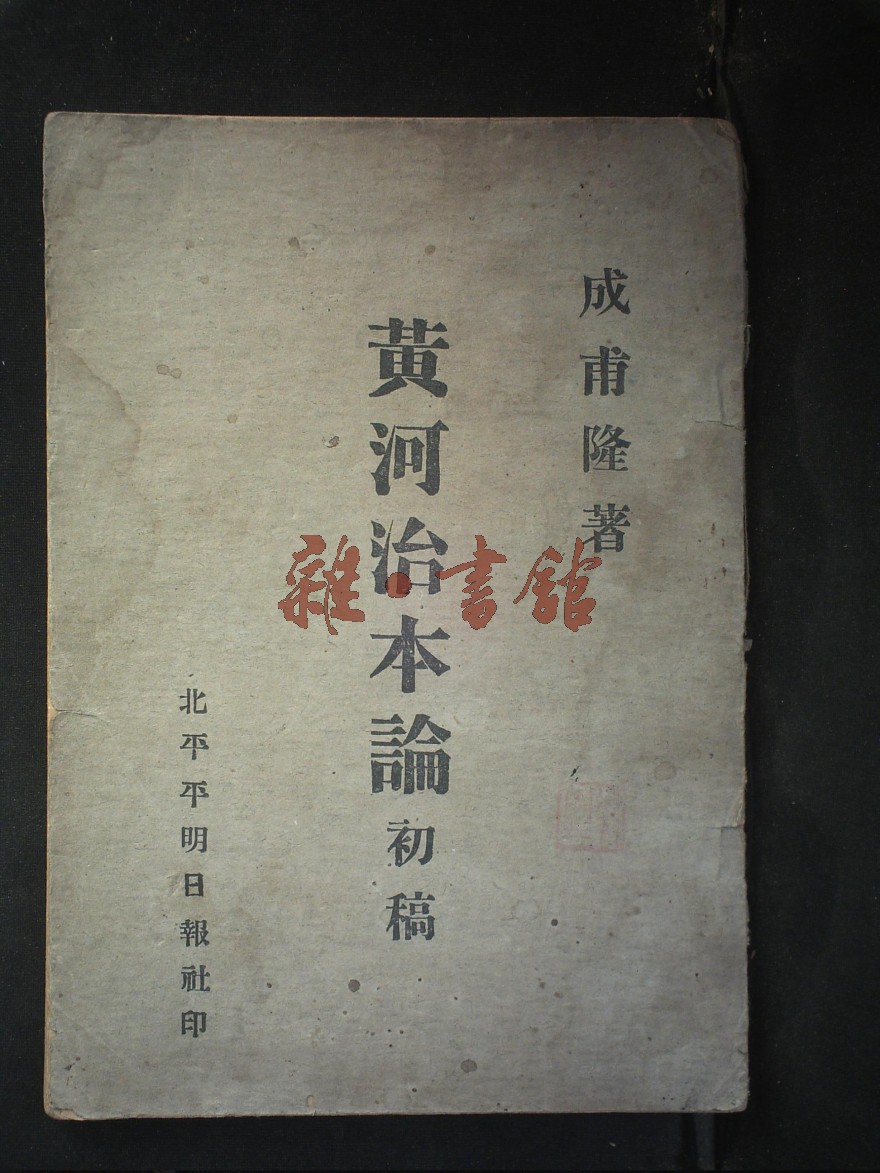 成甫隆著
黃河治本論初稿
北平平明日報社印
雜·書館